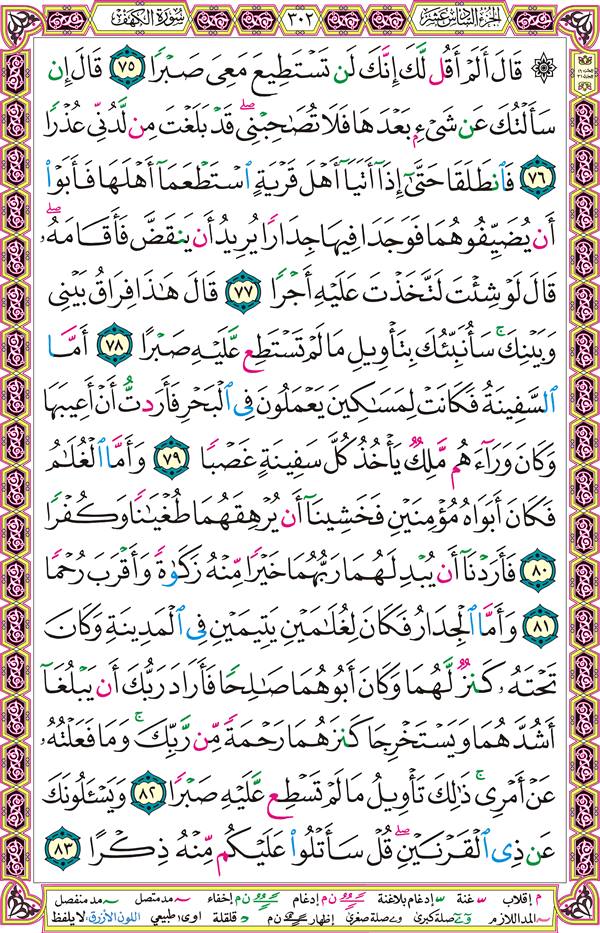 سورة الكهف ٣٠٢ الجزء السادس عشر
۞ قَالَ أَلَمْ أَقُل لَّكَ إِنَّكَ لَن تَسْتَطِيعَ مَعِىَ صَبْرًا ٧٥ قَالَ إِن
سَأَلْتُكَ عَن شَىْءٍۭ بَعْدَهَا فَلَا تُصَٰحِبْنِى ۖ قَدْ بَلَغْتَ مِن لَّدُنِّى عُذْرًا
٧٦ فَٱنطَلَقَا حَتَّىٰٓ إِذَآ أَتَيَآ أَهْلَ قَرْيَةٍ ٱسْتَطْعَمَآ أَهْلَهَا فَأَبَوْا۟
أَن يُضَيِّفُوهُمَا فَوَجَدَا فِيهَا جِدَارًا يُرِيدُ أَن يَنقَضَّ فَأَقَامَهُۥ ۖ
قَالَ لَوْ شِئْتَ لَتَّخَذْتَ عَلَيْهِ أَجْرًا ٧٧ قَالَ هَٰذَا فِرَاقُ بَيْنِى
وَبَيْنِكَ ۚ سَأُنَبِّئُكَ بِتَأْوِيلِ مَا لَمْ تَسْتَطِع عَّلَيْهِ صَبْرًا ٧٨ أَمَّا
ٱلسَّفِينَةُ فَكَانَتْ لِمَسَٰكِينَ يَعْمَلُونَ فِى ٱلْبَحْرِ فَأَرَدتُّ أَنْ أَعِيبَهَا
وَكَانَ وَرَآءَهُم مَّلِكٌ يَأْخُذُ كُلَّ سَفِينَةٍ غَصْبًا ٧٩ وَأَمَّا ٱلْغُلَٰمُ
فَكَانَ أَبَوَاهُ مُؤْمِنَيْنِ فَخَشِينَآ أَن يُرْهِقَهُمَا طُغْيَٰنًا وَكُفْرًا
٨٠ فَأَرَدْنَآ أَن يُبْدِلَهُمَا رَبُّهُمَا خَيْرًا مِّنْهُ زَكَوٰةً وَأَقْرَبَ رُحْمًا
٨١ وَأَمَّا ٱلْجِدَارُ فَكَانَ لِغُلَٰمَيْنِ يَتِيمَيْنِ فِى ٱلْمَدِينَةِ وَكَانَ
تَحْتَهُۥ كَنزٌ لَّهُمَا وَكَانَ أَبُوهُمَا صَٰلِحًا فَأَرَادَ رَبُّكَ أَن يَبْلُغَآ
أَشُدَّهُمَا وَيَسْتَخْرِجَا كَنزَهُمَا رَحْمَةً مِّن رَّبِّكَ ۚ وَمَا فَعَلْتُهُۥ
عَنْ أَمْرِى ۚ ذَٰلِكَ تَأْوِيلُ مَا لَمْ تَسْطِع عَّلَيْهِ صَبْرًا ٨٢ وَيَسْـَٔلُونَكَ
عَن ذِى ٱلْقَرْنَيْنِ ۖ قُلْ سَأَتْلُوا۟ عَلَيْكُم مِّنْهُ ذِكْرًا ٨٣
م إقلاب غنة إدغام بلاغنة ن م إدغام ن م إخفاء مد متصل مد منفصل
المد اللازم صلة كبرى صلة صغرى إظهار ن م قلقلة اوى طبيعي اللون الأزرق: لا يلفظ